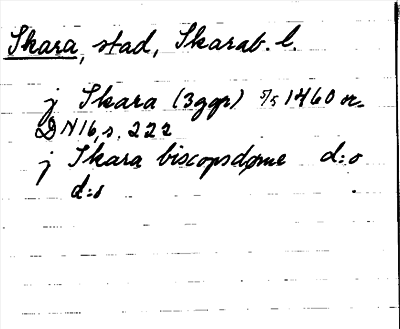 Skara, stad, Skarab. l.
j Skara (3ggr) 5/5 1460 or.
DN 16, s. 222
j Skara biscopsdøme d:o
d:o